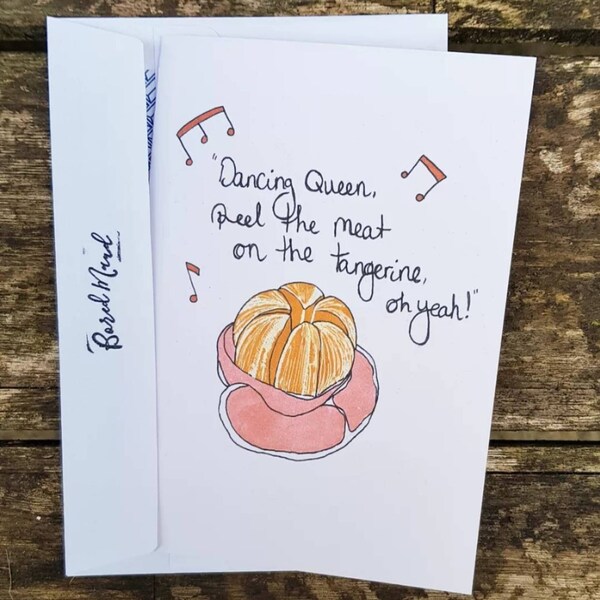 "Dancing Queen,
Peel the meat
on the tangerine,
oh yeah!"
Bored Mind